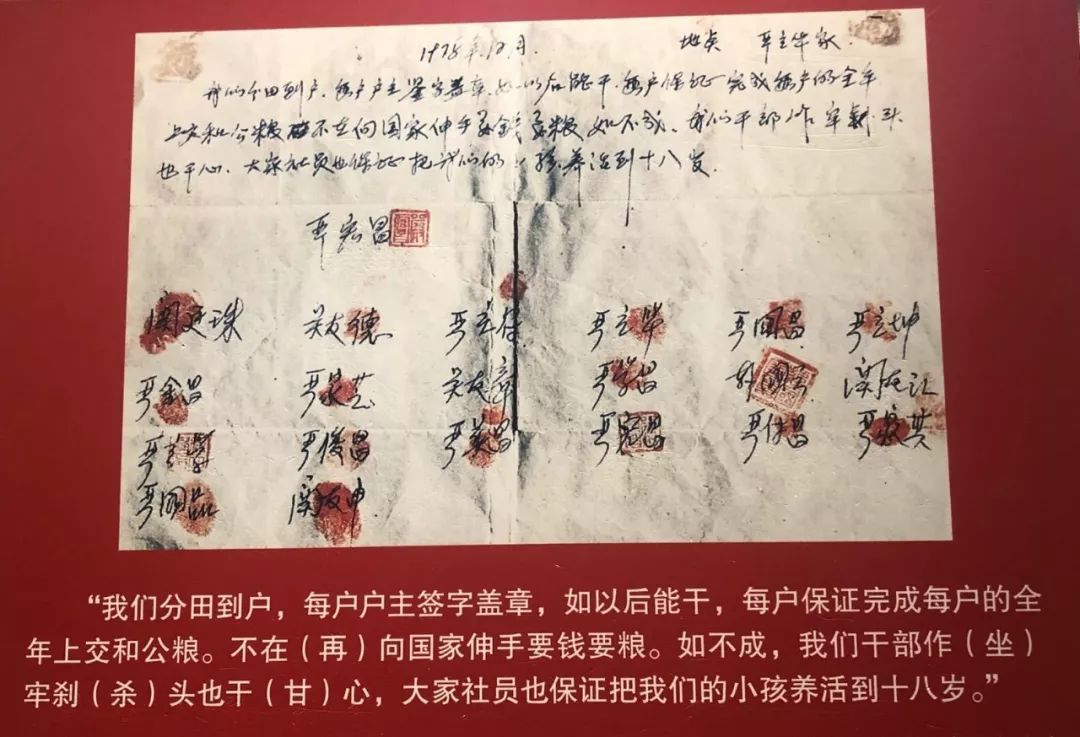 1978年12月. 地点 严立华家
我们分田到户,每户户主签字盖章,如以后能干,每户保证完成每户的全年
上交和公粮 不在向国家伸手要钱要粮 如不成,我们干部作牢刹头
也干心,大家社员也保证把我们的小孩养活到十八岁.
严宏昌
关廷珠 关友德 严立符 严立华 严国昌 严立坤
严金昌 严家芝 关友章 严学昌 韩国云 关友江
严立学 严俊昌 严美昌 严宏昌 严付昌 严家其
严国品 关友申
“我们分田到户，每户户主签字盖章，如以后能干，每户保证完成每户的全
年上交和公粮。不在（再）向国家伸手要钱要粮。如不成，我们干部作（坐）
牢刹（杀）头也干（甘）心，大家社员也保证把我们的小孩养活到十八岁。”